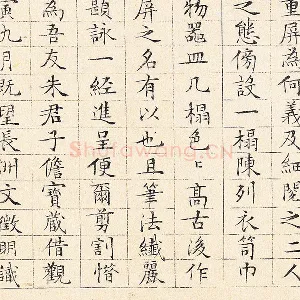 重屏為何義及細閱之二人
之態傍設一榻陳列衣笥巾
物器皿几榻色〻高古後作
屏之名有以也且筆法纖麗
題詠一經進呈便爾剪割惜
為吾友朱君子儋寶藏借觀
寅九月既望長洲文徵明識
Shufawang.CN